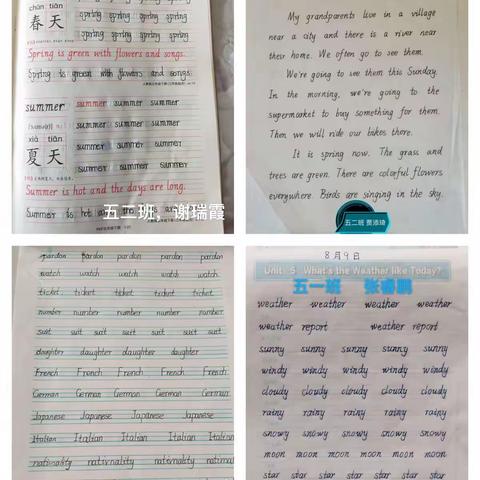 chūn tiān
春天
spring spring spring spring
spring spring spring spring
spring spring spring spring
Spring is green with flowers and songs.
Spring is green with flowers and songs.
summer summer summer summer
summer summer summer
xià tiān
夏天
summer summer summer
summer summer summer
Summer is hot and the days are long.
Summer is hot and the days are long.
五二班，谢瑞霞
My grandparents live in a village
near a city and there is a river near
their home. We often go to see them.
We're going to see them this Sunday.
In the morning, we're going to the
supermarket to buy something for them.
Then we will ride our bikes there.
It is spring now. The grass and
trees are green. There are colorful flowers
everywhere. Birds are singing in the sky.
五二班 贾添琦
pardon pardon pardon pardon pardon
watch watch watch watch watch
ticket. ticket ticket ticket ticket
number number number number number
suit suit suit suit suit suit
daughter daughter daughter daughter
French French French French French
German German German German German
Japanese Japanese Japanese Japanese
Italian Italian Italian Italian Italian
nationality nationality nationality nationality
8月9日
Unit 5 What's the Weather like Today?
五一班 张睿鹏
weather weather weather weather
weather report weather report
sunny sunny sunny sunny sunny
windy windy windy windy windy
cloudy cloudy cloudy cloudy cloudy
rainy rainy rainy rainy rainy
snowy snowy snowy snowy snowy
moon moon moon moon moon moon
star star star star star star